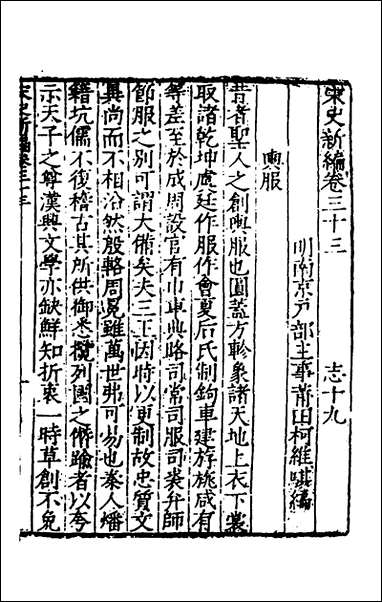 宋史新編卷三十三　志十九
明南京戶部主事莆田柯維騏編
輿服
昔者聖人之創輿服也圓蓋方軫象諸天地上衣下裳
取諸乾坤虞廷作服作會夏后氏制鉤車建旂旐咸有
等差至於成周設官有巾車典路司常司服司裘弁師
節服之別可謂大備矣夫三王因時以更制故忠質文
異尚而不相沿然殷輅周冕雖萬世弗可易也秦人燔
籍坑儒不復稽古其所供御悉攬列國之僭踰者以夸
示天子之尊漢興文學亦缺鮮知折衷一時草創不免
宋史新編卷三十三